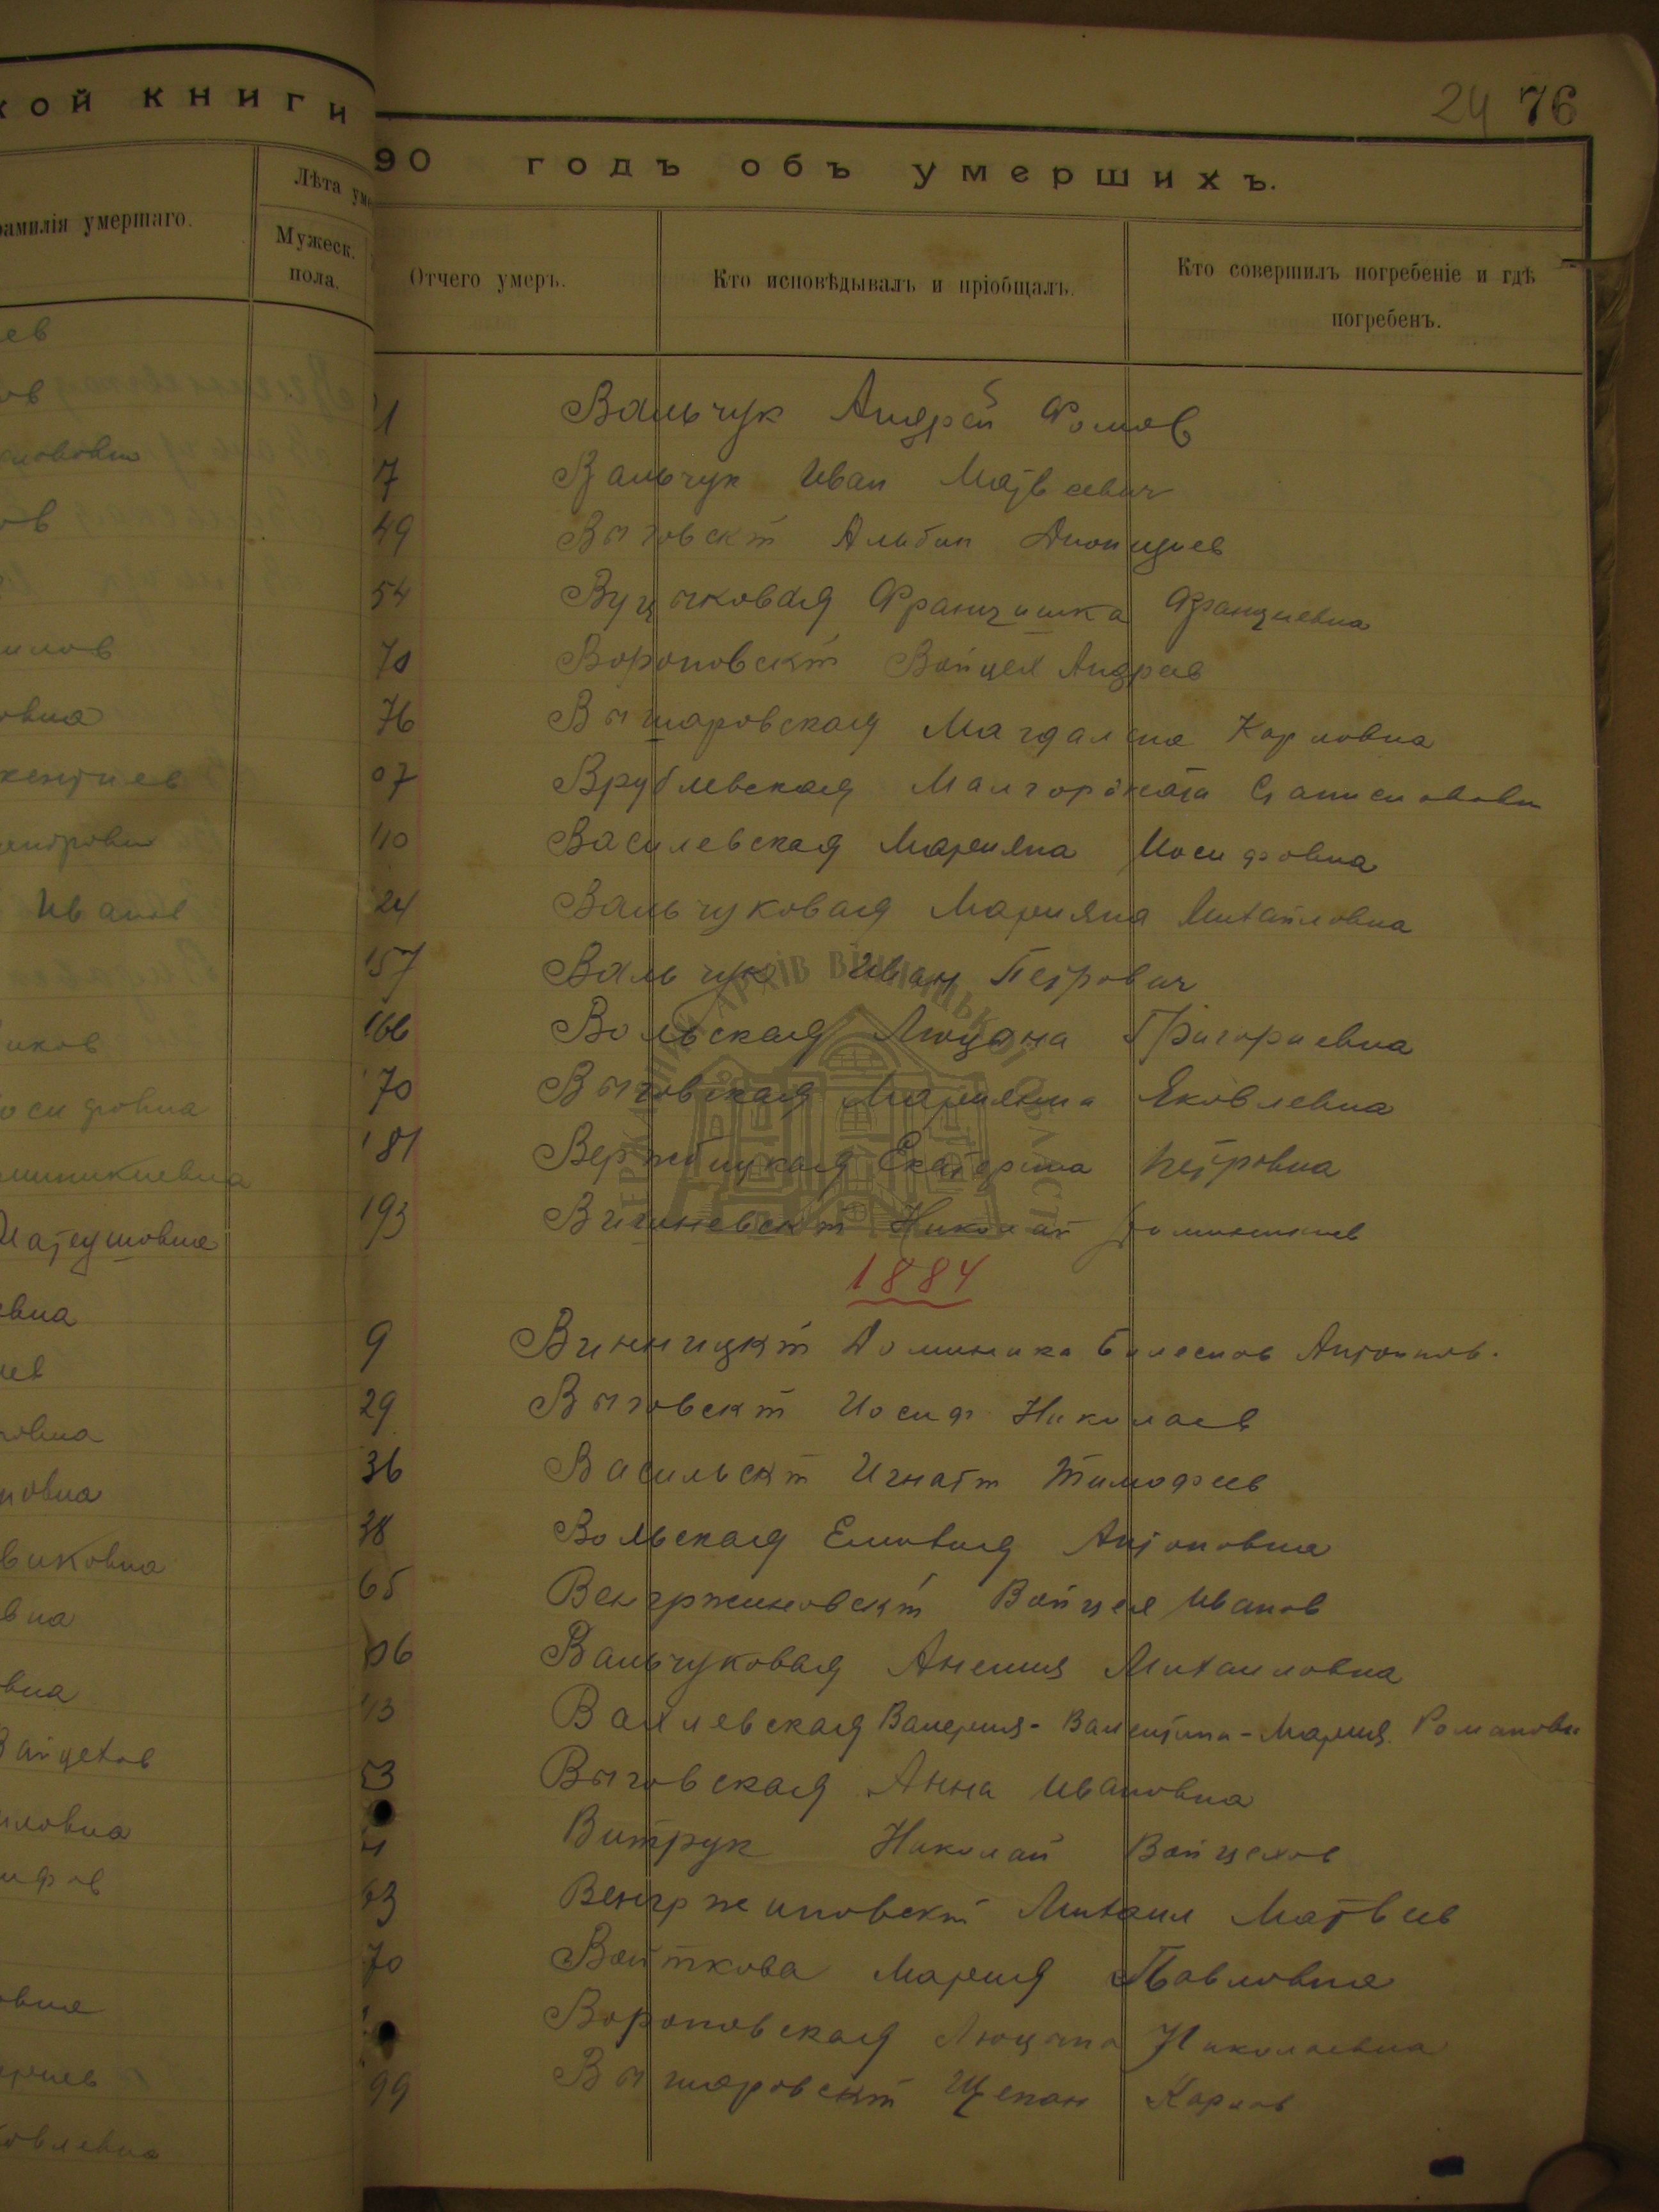 кой книги
амилія умершаго.
Лѣта
Мужеск.
пола.
24 76
90 годъ объ умершихъ.
Отчего умеръ.
Кто исповѣдывалъ и пріобщалъ.
Кто совершилъ погребеніе и гдѣ
погребенъ.
ев
ов
ов
илов
овна
Иванов
иков
осифовна
миникиевна
Матеушовна
евна
иев
овна
овна
виковна
вна
вна
Войцехов
иловна
ифов
овна
овлевна
1 Вальчук Андрей Фомов
7 Вальчук Иван Матвеевич
49 Выговскій Альбин Дионизиев
54 Вуцыковая Францишка Франциевна
70 Вороновскій Войцех Андреев
76 Вышаровская Магдалена Карловна
07 Врублевская Малгоржата Станиславовн
110 Василевская Марияна Иосифовна
24 Вальчуковая Марияна Михайловна
157 Вальчук Иван Петрович
166 Вольская Люцына Григориевна
70 Выговская Марияна Яковлевна
181 Вержбицкая Екатерина Петровна
193 Вишневскій Николай Доминикиев
1884
9 Винницкій Доминика Антонов.
29 Выговскій Иосиф Николаев
36 Васильскій Игнатій Тимофеев
38 Вольская Антоновна
65 Венгржиновскій Войцех Иванов
06 Вальчуковая Анеля Михаиловна
13 Василевская Валерия-Валентина-Мария Романовн
53 Выговская Анна Ивановна
Витрук Николай Войцехов
63 Венгржиновскій Михаил Матвеев
70 Войткова Мария Павловна
Вороновская Люцына Николаевна
99 Вышаровскій Щепан Карлов
ДЕРЖАВНИЙ АРХІВ ВІННИЦЬКОЇ ОБЛАСТІ